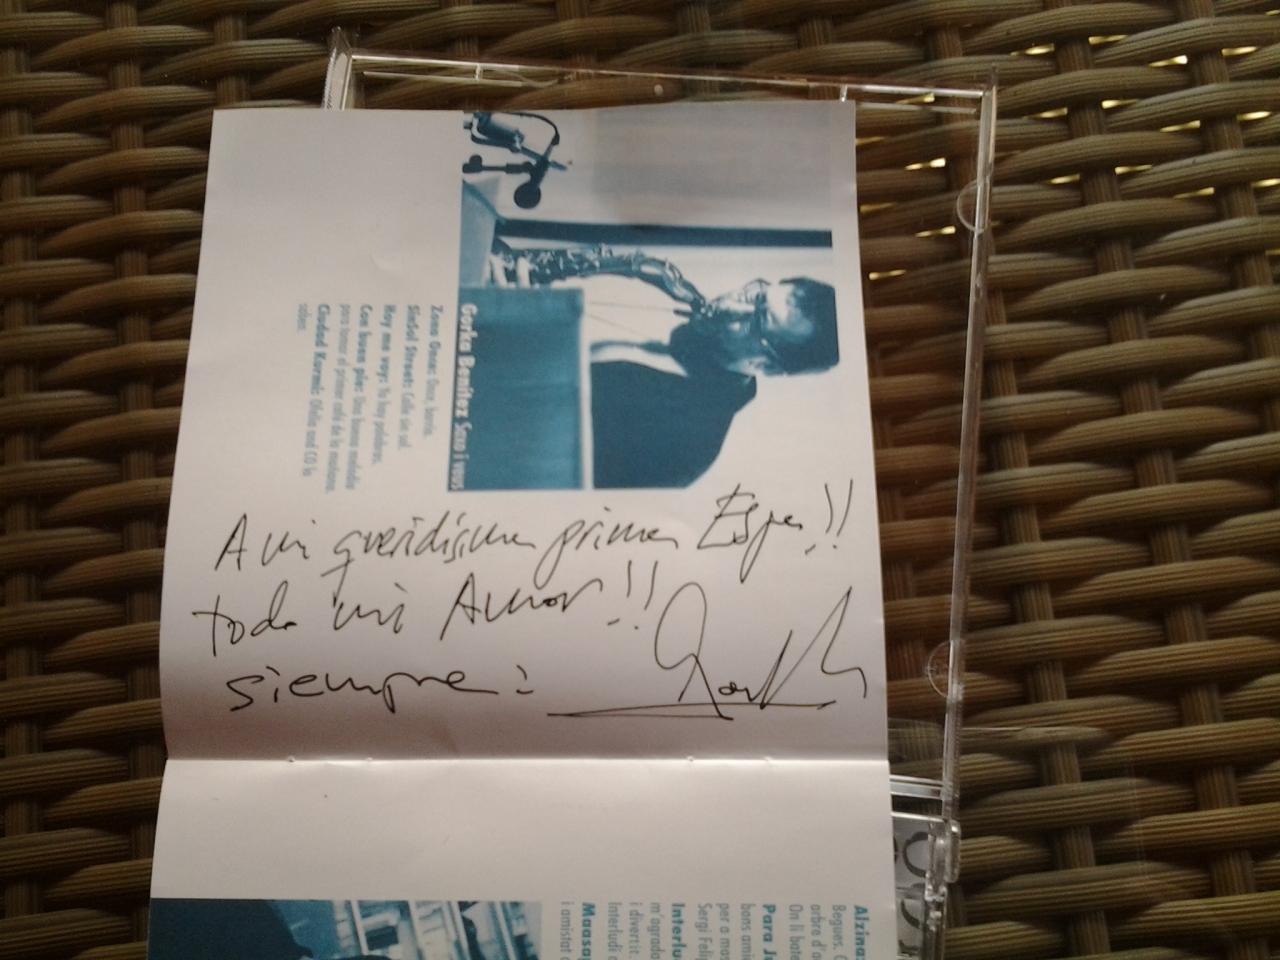 Gorka Benítez Saxo i veus
Zona Once: Once, barrio.
SinSol Street: Calle sin sol.
Hoy me voy: Ya hay palabras.
Con buen pie: Una buena melodía
para tomar el primer café de la mañana.
Ciudad Kurmi: Ofelia and CO lo
saben.
A mi queridísima prima Espe!!
todo mi Amor!!
siempre:
Gorka
Alzina:
Begues, C
arbre d'a
On li bate
Para Ju
bons ami
per a mos
Sergi Felip
Interlu
m'agrada
i divertit.
Interludi
Maasa
i amistat